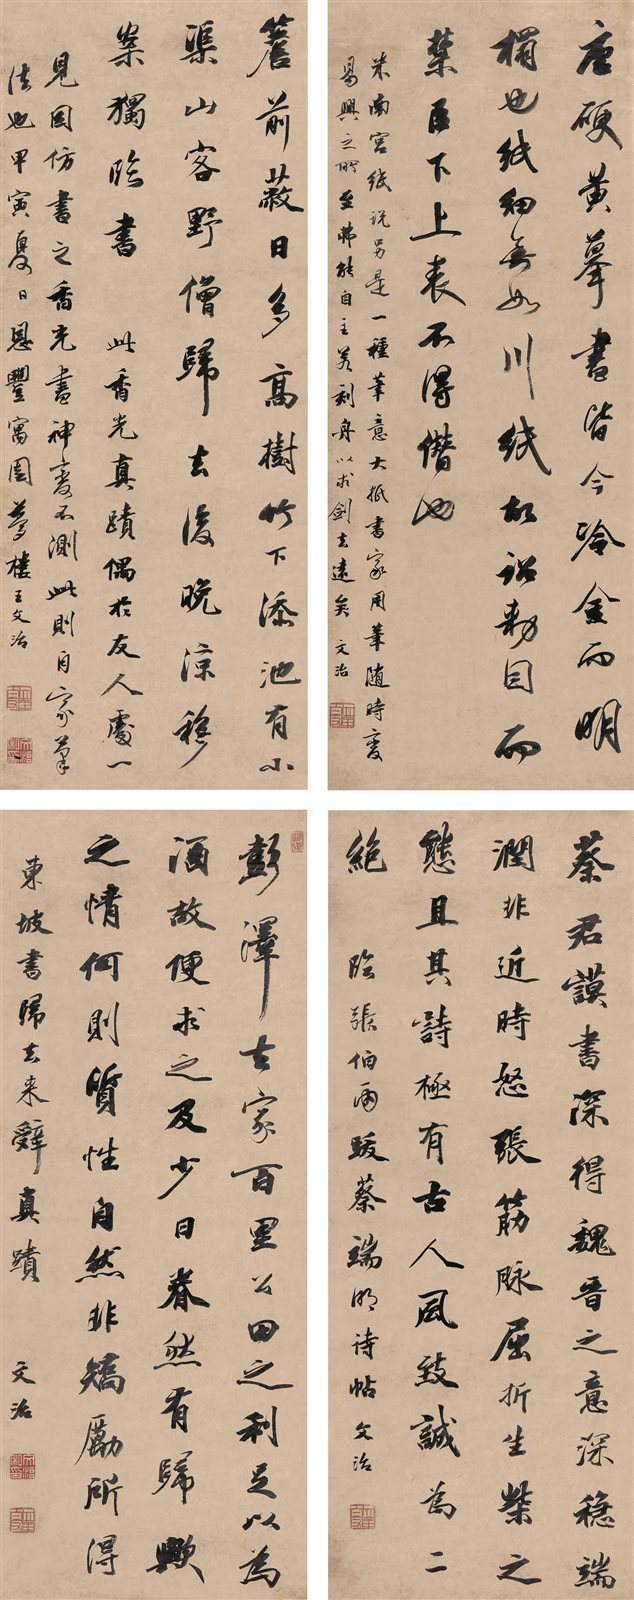 唐硬黃摹書皆今冷金而明
也紙細無如川紙故詔勅因而
禁臣下上表不得僭也
米南宮紙說另是一種筆意大抵書家用筆隨時變
易興之所至弗能自主若刻舟以求劍去遠矣 文治
簷前蔽日多高樹竹下添池有小
渠山客野僧歸去後晚涼移
案獨臨書 此香光真蹟偶於友人處一
見因仿書之香光書神變不測此則自家筆
法也甲寅夏日恩豐寓園夢樓王文治
蔡君謨書深得魏晋之意深穩端
潤非近時怒張筋脉屈折生柴之
態且其詩極有古人風致誠為二
絕 臨張伯雨跋蔡端明诗帖 文治
彭澤去家百里公田之利足以為
酒故便求之及少日眷然有歸歟
之情何則質性自然非矯勵所得
東坡書歸去来辭真蹟 文治